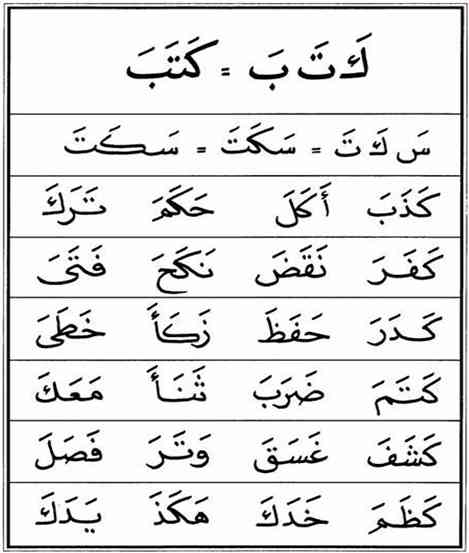 كَ تَ بَ = كَتَبَ
سَ كَ تَ = سَكَتَ = سَكَتَ
كَذَبَ أَكَلَ حَكَمَ تَرَكَ
كَفَرَ نَقَضَ نَكَحَ فَتَىَ
كَدَرَ حَفَظَ زَكَأَ خَطَىَ
كَتَمَ ضَرَبَ ثَنَأَ مَعَكَ
كَشَفَ غَسَقَ وَتَرَ فَصَلَ
كَظَمَ خَدَكَ هَكَذَ يَدَكَ